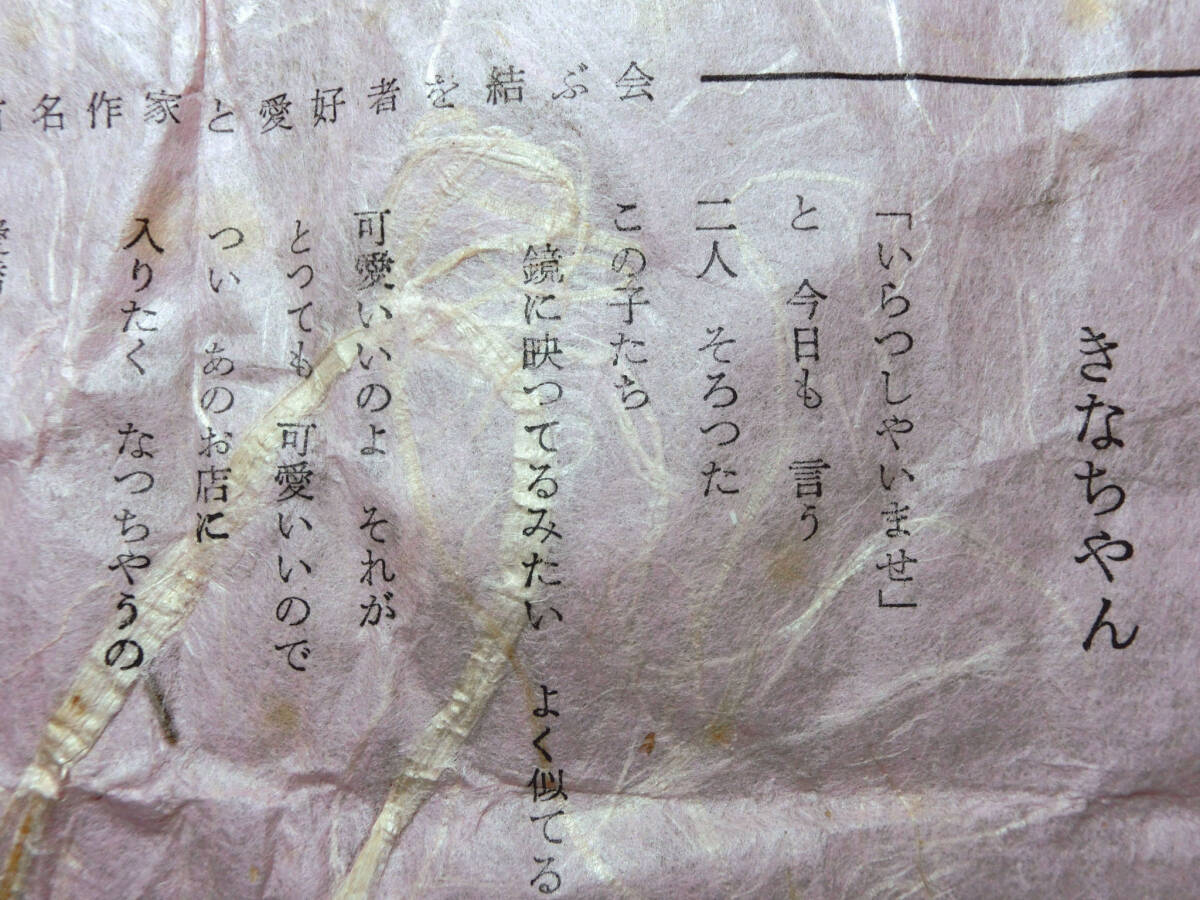 名作家と愛好者を結ぶ会
きなちやん
「いらつしやいませ」
と 今日も 言う
二人 そろつた
この子たち
鏡に映つてるみたい よく似てる
可愛いいのよ それが
とつても 可愛いいので
つい あのお店に
入りたく なつちやうの